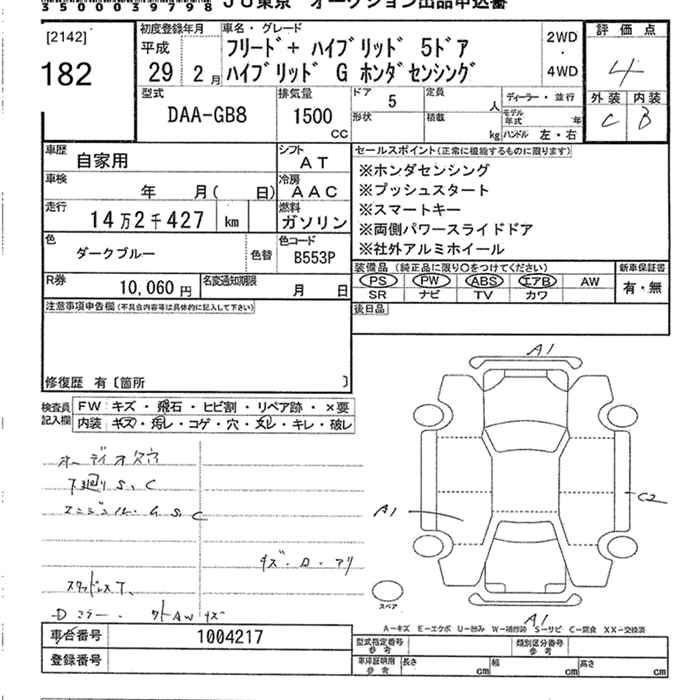 35000039798 JU東京 オークション出品申込書
[2142]
182
初度登録年月
平成
29 2月
車名・グレード
フリード+ ハイブリッド 5ドア
ハイブリッド G ホンダセンシング
2WD
・
4WD
評価点
4
外装 内装
C B
型式
DAA-GB8
排気量
1500
CC
ドア
5
定員
人
ディーラー・並行
形状
積載
kg
モデル年式 年
ハンドル 左・右
車歴
自家用
シフト
AT
車検
年 月( 日)
冷房
AAC
走行
14万2千427 km
燃料
ガソリン
色
ダークブルー
色替
色コード
B553P
R券
10,060円
名変通知期限
月 日
セールスポイント(正常に機能するものに限ります)
※ホンダセンシング
※プッシュスタート
※スマートキー
※両側パワースライドドア
※社外アルミホイール
装備品 (純正品に限り○をつけてください)
新車保証書
PS PW ABS エアB AW
有・無
SR ナビ TV カワ
後日品
注意事項申告欄(不具合内容等は具体的に記入して下さい)
修復歴 有〔箇所 〕
検査員
記入欄
FW キズ・飛石・ヒビ割・リペア跡・×要
内装 キズ・汚レ・コゲ・穴・スレ・キレ・破レ
オーディオ欠穴
下廻りS、C
エンジンルームS、C
キズ・凹・アリ
スタッドレスT、
Dミラー・外AWキズ
A1
A1
C2
A1
スペア
A－キズ E－エクボ U－凹み W－補修跡 S－サビ C－腐食 XX－交換済
車台番号 1004217
登録番号
型式指定番号
参考
類別区分番号
参考
車庫証明用
参考
長さ cm
幅 cm
高さ cm